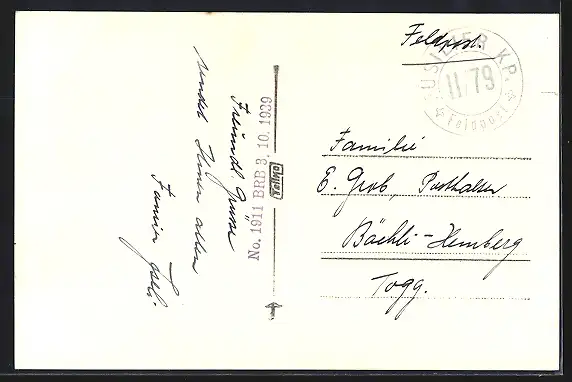 Feldpost.
FÜSILIER KP.
II/79
Feldpost
Familie
E. Grob, Posthalter
Bächli-Hemberg
Togg.
No. 1911 BRB 3. 10. 1939
Freundl. Grüsse
sendet Ihnen allen